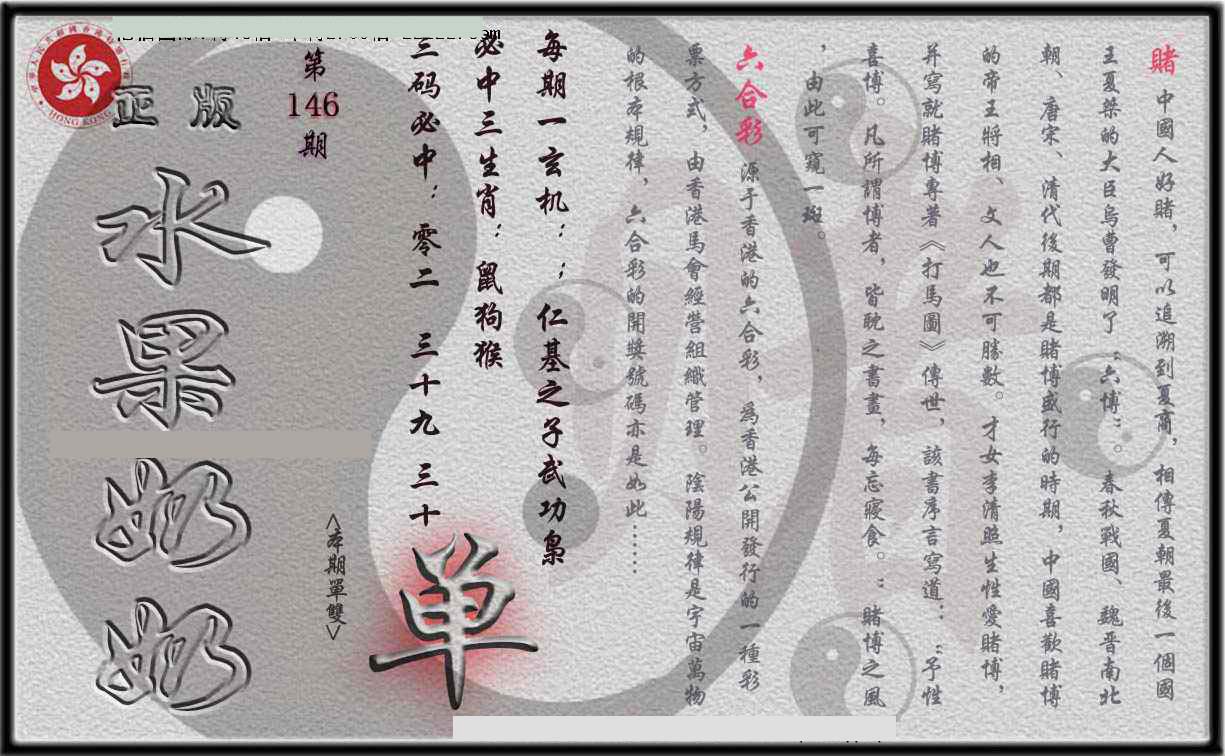 賭 中國人好賭，可以追溯到夏商，相傳夏朝最後一個國
王夏桀的大臣烏曹發明了“六博”。春秋戰國、魏晉南北
朝、唐宋、清代後期都是賭博盛行的時期，中國喜歡賭博
的帝王將相、文人也不可勝數。才女李清照生性愛賭博，
并寫就賭博專著《打馬圖》傳世，該書序言寫道：“予性
喜博。凡所謂博者，皆耽之書畫，每忘寢食。”賭博之風
，由此可窺一斑。
六合彩 源于香港的六合彩，為香港公開發行的一種彩
票方式，由香港馬會經營組織管理。陰陽規律是宇宙萬物
的根本規律，六合彩的開獎號碼亦是如此……
每期一玄机：；仁基之子武功梟
必中三生肖：鼠狗猴
三码必中：零二 三十九 三十
单
<本期單雙>
第
146
期
正版
水果奶奶
HONG KONG